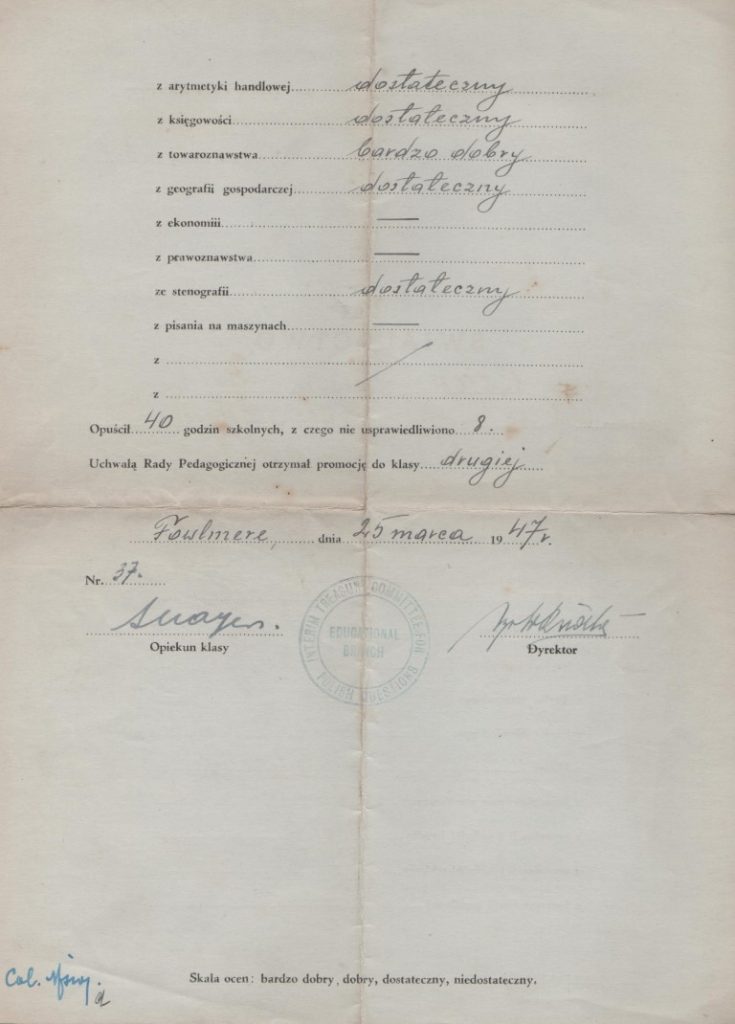 z arytmetyki handlowej dostateczny
z księgowości dostateczny
z towaroznawstwa bardzo dobry
z geografii gospodarczej dostateczny
z ekonomiii —
z prawoznawstwa —
ze stenografii dostateczny
z pisania na maszynach —
z /
z
Opuścił 40 godzin szkolnych, z czego nie usprawiedliwiono 8.
Uchwałą Rady Pedagogicznej otrzymał promocję do klasy drugiej
Fowlmere, dnia 25 marca 1947 r.
Nr. 37.
Opiekun klasy
INTERIM TREASURY COMMITTEE FOR POLISH QUESTIONS
EDUCATIONAL
BRANCH
Dyrektor
Col.
Skala ocen: bardzo dobry, dobry, dostateczny, niedostateczny.